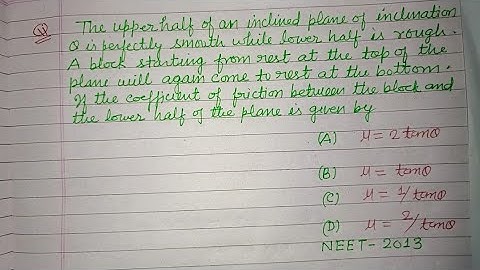 Q The upper half of an inclined plane of inclination
Q is perfectly smooth while lower half is rough.
A block starting from rest at the top of the
plane will again come to rest at the bottom.
If the coefficient of friction between the block and
the lower half of the plane is given by
(A) μ = 2 tanθ
(B) μ = tanθ
(C) μ = 1/tanθ
(D) μ = 2/tanθ
NEET - 2013